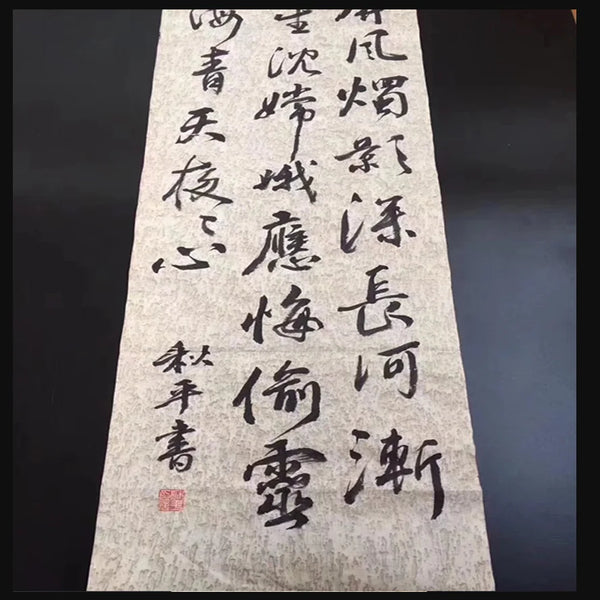 屏风燭影深長河漸
星沈嫦娥應悔偷靈
海青天夜〻心
秋平書